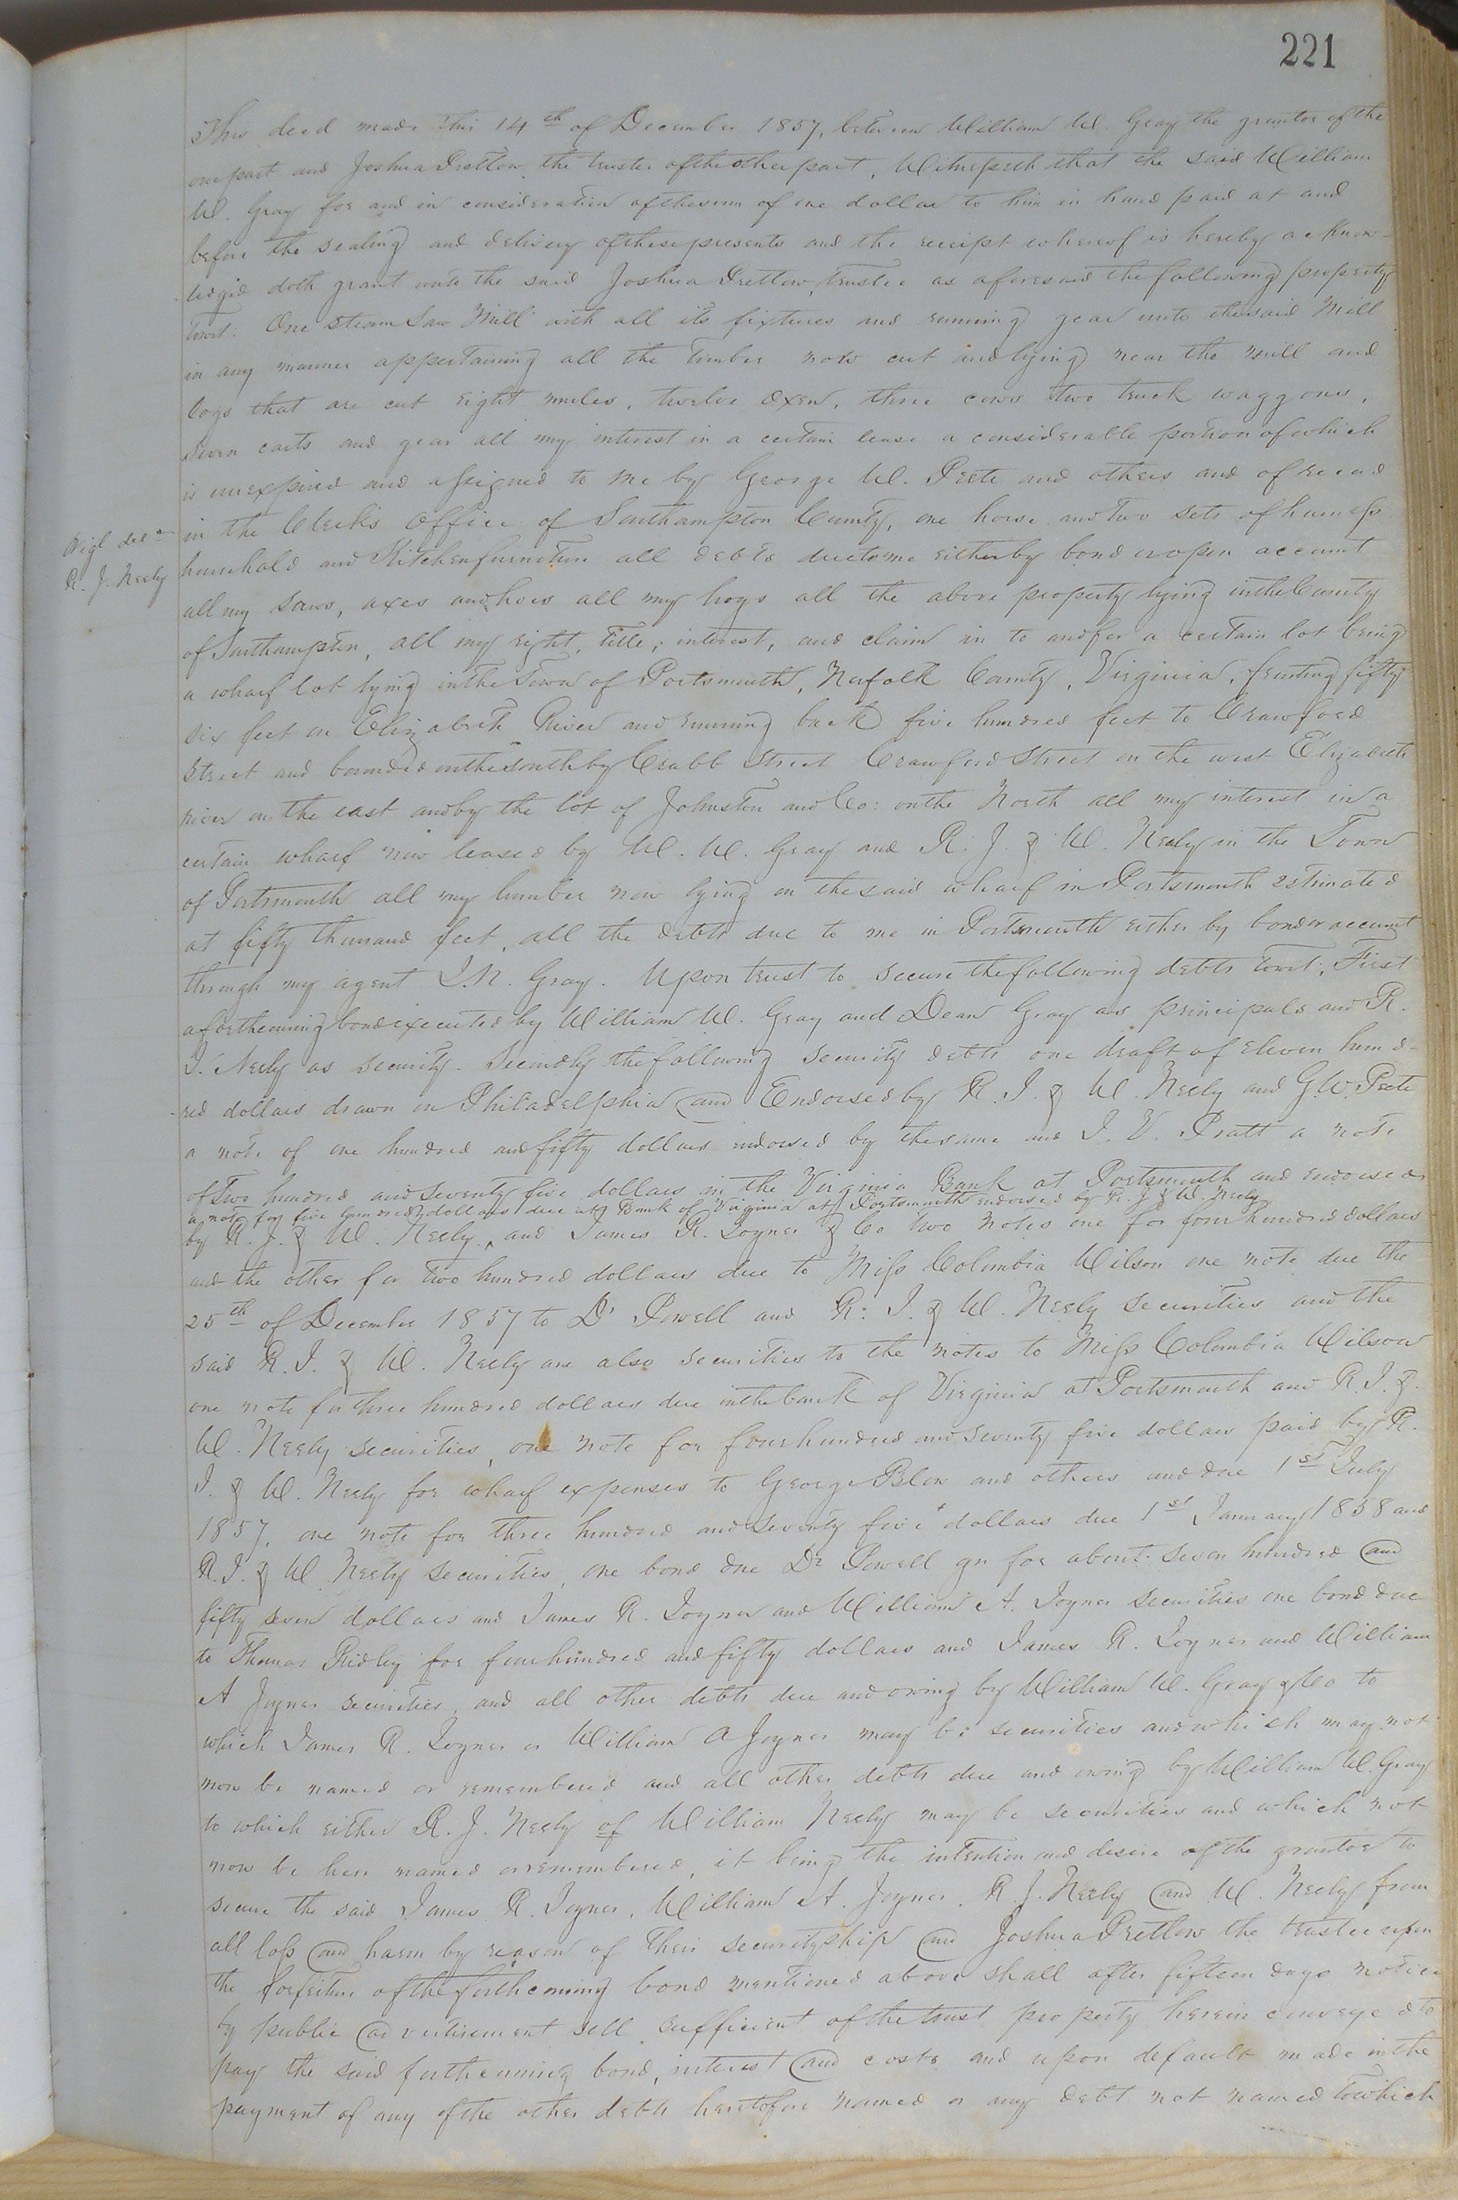 221
This deed made this 14th of December 1857, between William W. Gray the grantor of the
one part and Joshua Pretlow, the trustee of the other part, Witnesseth that the said William
W. Gray for and in consideration of the sum of one dollar to him in hand paid at and
before the sealing and delivery of these presents and the receipt whereof is hereby acknow-
ledged doth grant unto the said Joshua Pretlow, trustee as aforesaid the following property
towit: One Steam Saw Mill with all its fixtures and running gear unto the said Mill
in any manner appertaining all the timber now cut and lying near the mill and
logs that are cut eight mules, twelve oxen, three cows two truck waggons,
seven carts and gear all my interest in a certain lease a considerable portion of which
is unexpired and assigned to me by George W. Peete and others and of record
in the Clerk's Office of Southampton County, one horse and two sets of harness
Origl del d
R. J. Neely
household and Kitchen furniture all debts due to me either by bond or open account
all my saws, axes and hoes all my hogs all the above property lying in the County
of Southampton, all my right, title, interest, and claim in to and for a certain lot being
a wharf lot lying in the Town of Portsmouth, Norfolk County, Virginia, fronting fifty
six feet on Elizabeth River and running back five hundred feet to Crawford
Street and bounded on the south by Crabb Street Crawford Street on the west Elizabeth
river on the east and by the lot of Johnston and Co: on the North all my interest in a
certain wharf now leased by W. W. Gray and R. J. & W. Neely in the Town
of Portsmouth all my lumber now lying on the said wharf in Portsmouth estimated
at fifty thousand feet, all the debts due to me in Portsmouth either by bond or account
through my agent J. N. Gray. Upon trust to secure the following debts towit; First
a forthcoming bond executed by William W. Gray and Dean Gray as principals and R.
J. Neely as security. Secondly the following security debts one draft of eleven hund-
red dollars drawn on Philadelphia and Endorsed by R. J. & W. Neely and G. W. Peete
a note of one hundred and fifty dollars endorsed by the same and J. V. Pratt a note
of two hundred and seventy five dollars in the Virginia Bank at Portsmouth and endorsed
a note for five hundred dollars due at Bank of Virginia at Portsmouth endorsed by R. J. & W. Neely
by R. J. & W. Neely, ^ and James R. Joyner & Co two notes one for four hundred dollars
and the other for two hundred dollars due to Miss Columbia Wilson one note due the
25th of December 1857 to Dr Powell and R. J. & W. Neely securities and the
said R. J. & W. Neely are also securities to the notes to Miss Columbia Wilson
one note for three hundred dollars due in the bank of Virginia at Portsmouth and R. J. &.
W. Neely securities, one note for four hundred and seventy five dollars paid by R.
J. & W. Neely for wharf expenses to George Blow and others and due 1st July
1857, one note for three hundred and seventy five dollars due 1st January 1858 and
R. J. & W. Neely securities, one bond due Dr Powell gn for about seven hundred and
fifty seven dollars and James R. Joyner and William A. Joyner securities one bond due
to Thomas Ridley for four hundred and fifty dollars and James R. Joyner and William
A Joyner securities, and all other debts due and owing by William W. Gray & Co to
which James R. Joyner or William A Joyner may be securities and which may not
now be named or remembered and all other debts due and owing by William W. Gray
to which either R. J. Neely of William Neely may be securities and which not
now be here named or remembered, it being the intention and desire of the grantor to
secure the said James R. Joyner, William A. Joyner, R. J. Neely and W. Neely from
all loss and harm by reason of their securityship and Joshua Pretlow the trustee upon
the forfeiture of the forthcoming bond mentioned above shall after fifteen days notice
by public advertisement sell sufficient of the trust property herein conveyed to
pay the said forthcoming bond, interest and costs and upon default made in the
payment of any of the other debts heretofore named or any debt not named to which